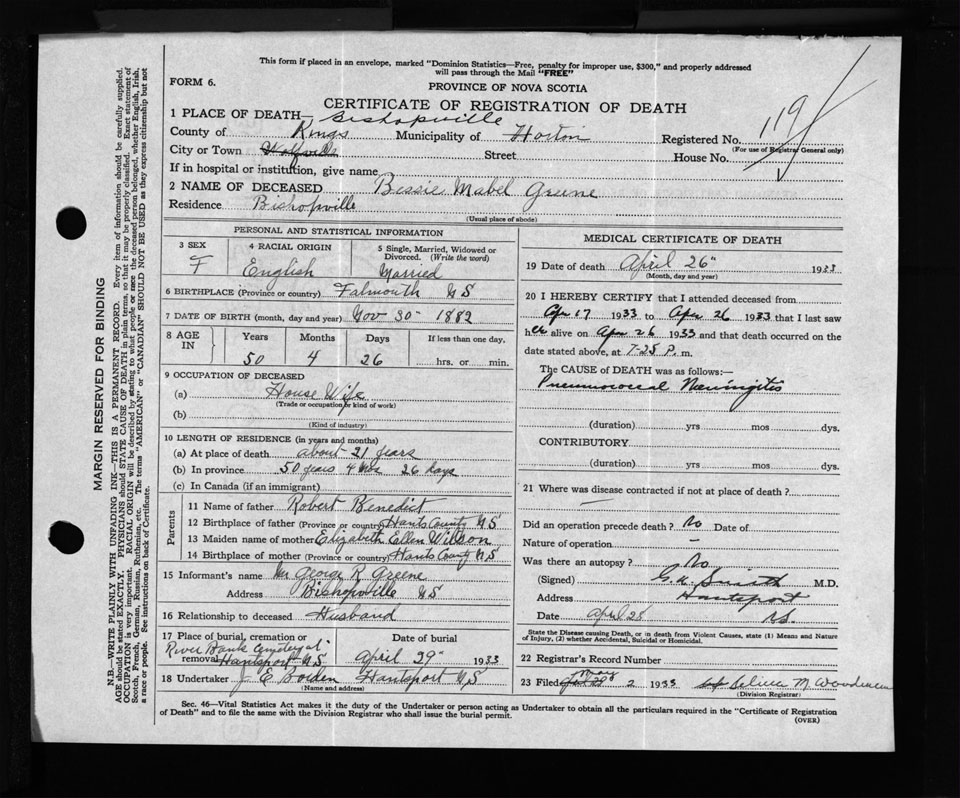 This form if placed in an envelope, marked "Dominion Statistics—Free, penalty for improper use, $300," and properly addressed
will pass through the Mail "FREE"
FORM 6.
PROVINCE OF NOVA SCOTIA
CERTIFICATE OF REGISTRATION OF DEATH
1 PLACE OF DEATH— Bishopville
County of Kings Municipality of Horton Registered No. 119
(For use of Registrar General only)
City or Town Wolfville Street House No.
If in hospital or institution, give name
2 NAME OF DECEASED Bessie Mabel Greene
Residence Bishopville
(Usual place of abode)
PERSONAL AND STATISTICAL INFORMATION
3 SEX 4 RACIAL ORIGIN 5 Single, Married, Widowed or
Divorced. (Write the word)
F English Married
6 BIRTHPLACE (Province or country) Falmouth N S
7 DATE OF BIRTH (month, day and year) Nov 30" 1882
8 AGE IN Years Months Days If less than one day.
50 4 26 hrs. or min.
9 OCCUPATION OF DECEASED
(a) House Wife
(Trade or occupation or kind of work)
(b)
(Kind of industry)
10 LENGTH OF RESIDENCE (in years and months)
(a) At place of death about 21 years
(b) In province 50 years 4 Mos 26 days
(c) In Canada (if an immigrant)
Parents
11 Name of father Robert Benedict
12 Birthplace of father (Province or country) Hants County N S
13 Maiden name of mother Elizabeth Ellen Wilson
14 Birthplace of mother (Province or country) Hants County N S
15 Informant's name Mr George R Greene
Address Bishopville N S
16 Relationship to deceased Husband
17 Place of burial, cremation or Date of burial
River Bank Cemetery at
removal Hantsport N S April 29" 1933
18 Undertaker J E Borden Hantsport N S
(Name and address)
MEDICAL CERTIFICATE OF DEATH
19 Date of death April 26" 1933
(Month, day and year)
20 I HEREBY CERTIFY that I attended deceased from
Apr 17 1933 to Apr 26 1933 that I last saw
her alive on Apr 26 1933 and that death occurred on the
date stated above, at 7-25 P. m.
The CAUSE OF DEATH was as follows:—
Pneumococcal Meningitis
(duration) yrs mos dys.
CONTRIBUTORY
(duration) yrs mos dys.
21 Where was disease contracted if not at place of death?
—
Did an operation precede death? No Date of
Nature of operation —
Was there an autopsy? No
(Signed) Smith M.D.
Address Hantsport
Date April 28 N.S.
State the Disease causing Death, or in death from Violent Causes, state (1) Means and Nature
of Injury, (2) whether Accidental, Suicidal or Homicidal.
22 Registrar's Record Number
23 Filed May 2 1933 M Woodman
(Division Registrar)
Sec. 46—Vital Statistics Act makes it the duty of the Undertaker or person acting as Undertaker to obtain all the particulars required in the "Certificate of Registration
of Death" and to file the same with the Division Registrar who shall issue the burial permit.
(OVER)
MARGIN RESERVED FOR BINDING
N.B.—WRITE PLAINLY WITH UNFADING INK—THIS IS A PERMANENT RECORD. Every item of information should be carefully supplied.
AGE should be stated EXACTLY. PHYSICIANS should STATE CAUSE OF DEATH in plain terms, so that it may be properly classified. Exact statement of
OCCUPATION is very important. RACIAL ORIGIN will be described by stating to what people or race the deceased person belonged, whether English, Irish,
Scotch, French, German, Russian, Ruthenian, etc. The terms "AMERICAN" or "CANADIAN" SHOULD NOT BE USED as they express citizenship but not
a race or people. See instructions on back of Certificate.